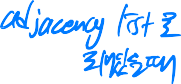 adjacency list로
표현했을때